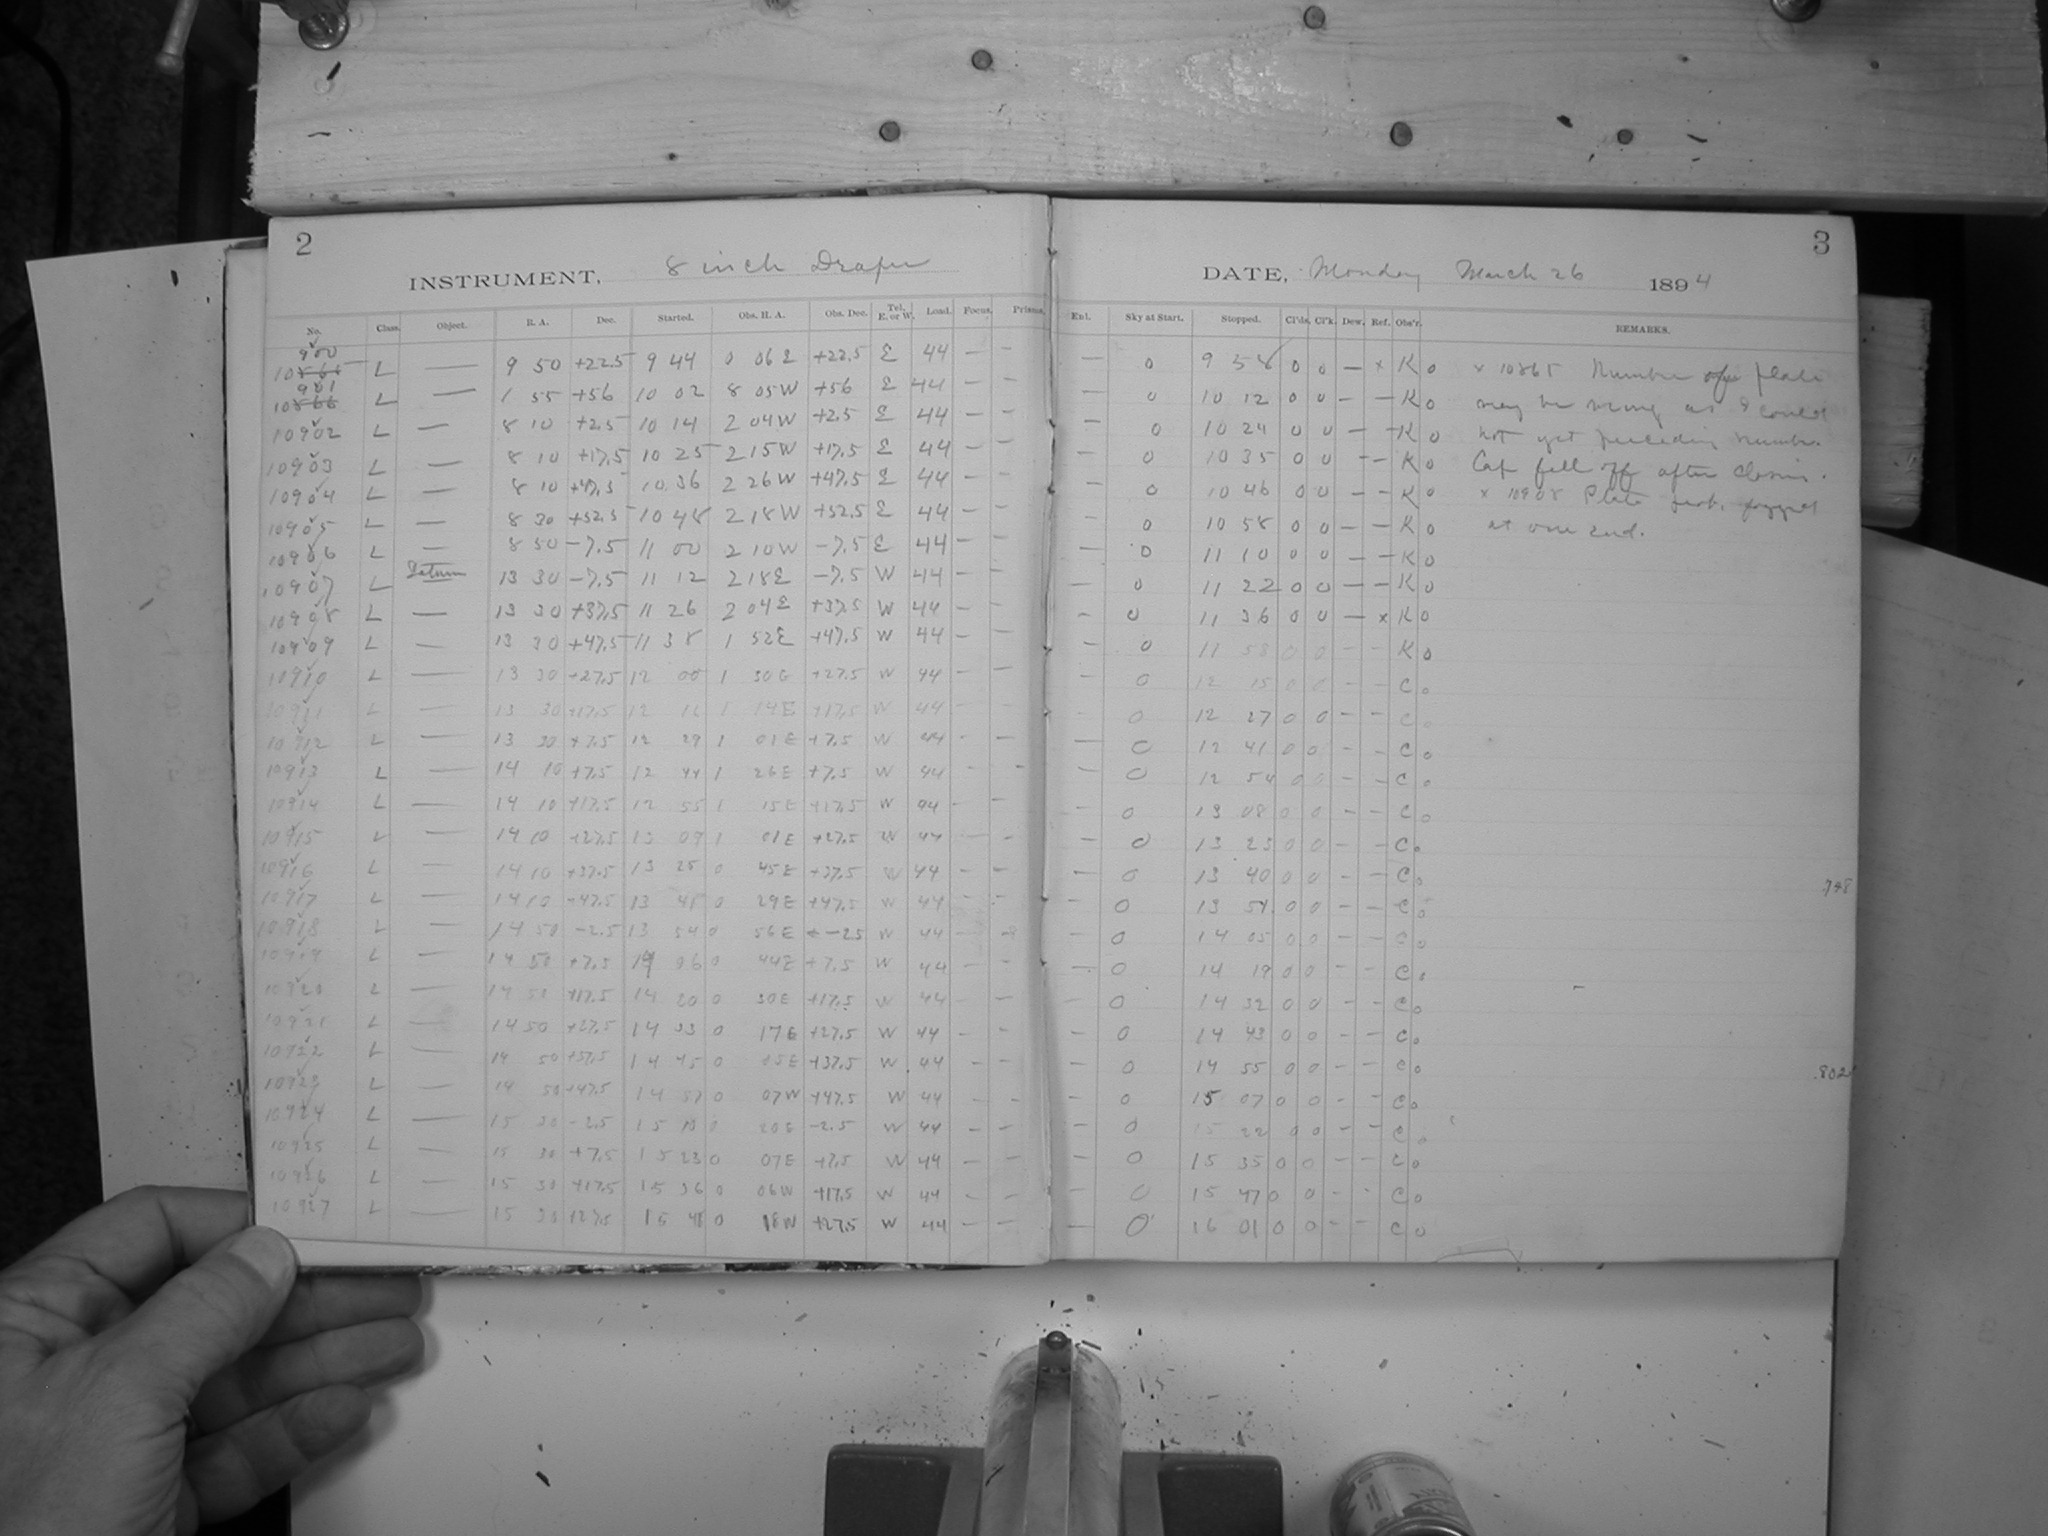 2
INSTRUMENT, 8 inch Draper
No. Class. Object. R. A. Dec. Started. Obs. H. A. Obs. Dec. Tel. E. or W. Load. Focus. Prisms.
900
10865 L — 9 50 +22.5 9 44 0 06 E +22.5 E 44 — —
901
10866 L — 1 55 +56 10 02 8 05 W +56 E 44 — —
10902 L — 8 10 +2.5 10 14 2 04 W +2.5 E 44 — —
10903 L — 8 10 +17.5 10 25 2 15 W +17.5 E 44 — —
10904 L — 8 10 +47.5 10 36 2 26 W +47.5 E 44 — —
10905 L — 8 30 +52.5 10 48 2 18 W +52.5 E 44 — —
10906 L — 8 50 -7.5 11 00 2 10 W -7.5 E 44 — —
10907 L Saturn 13 30 -7.5 11 12 2 18 E -7.5 W 44 — —
10908 L — 13 30 +37.5 11 26 2 04 E +37.5 W 44 — —
10909 L — 13 30 +47.5 11 38 1 52 E +47.5 W 44 — —
10910 L — 13 30 +27.5 12 00 1 30 E +27.5 W 44 — —
10911 L — 13 30 +17.5 12 16 1 14 E +17.5 W 44 — —
10912 L — 13 30 +7.5 12 29 1 01 E +7.5 W 44 — —
10913 L — 14 10 +7.5 12 44 1 26 E +7.5 W 44 — —
10914 L — 14 10 +17.5 12 55 1 15 E +17.5 W 44 — —
10915 L — 14 10 +27.5 13 09 1 01 E +27.5 W 44 — —
10916 L — 14 10 +37.5 13 25 0 45 E +37.5 W 44 — —
10917 L — 14 10 +47.5 13 41 0 29 E +47.5 W 44 — —
10918 L — 14 50 -2.5 13 54 0 56 E -2.5 W 44 —
10919 L — 14 50 +7.5 14 06 0 44 E +7.5 W 44 — —
10920 L — 14 50 +17.5 14 20 0 30 E +17.5 W 44 — —
10921 L — 14 50 +27.5 14 33 0 17 E +27.5 W 44 — —
10922 L — 14 50 +37.5 14 45 0 05 E +37.5 W 44 — —
10923 L — 14 50 +47.5 14 57 0 07 W +47.5 W 44 — —
10924 L — 15 30 -2.5 15 10 0 20 E -2.5 W 44 — —
10925 L — 15 30 +7.5 15 23 0 07 E +7.5 W 44 — —
10926 L — 15 30 +17.5 15 36 0 06 W +17.5 W 44 — —
10927 L — 15 30 +27.5 15 48 0 18 W +27.5 W 44 — —
3
DATE, Monday March 26 1894
Enl. Sky at Start. Stopped. Cl'ds. Cl'k. Dew. Ref. Obs'r. REMARKS.
— 0 9 58 0 0 — x K 0 x 10865 Number of plate
— 0 10 12 0 0 — — K 0 may be wrong as I could
0 10 24 0 0 — — K 0 not get preceding number.
0 10 35 0 0 — — K 0 Cap fell off after closing.
0 10 46 0 0 — — K 0 x 10908 Plate prob. fogged
0 10 58 0 0 — — K 0 at one end.
— 0 11 10 0 0 — — K 0
— 0 11 22 0 0 — — K 0
— 0 11 36 0 0 — x K 0
— 0 11 53 0 0 — — K 0
— 0 12 15 0 0 — — C 0
— 0 12 27 0 0 — — C 0
— 0 12 41 0 0 — — C 0
— 0 12 54 0 0 — — C 0
— 0 13 08 0 0 — — C 0
— 0 13 23 0 0 — — C 0
— 0 13 40 0 0 — — C 0
— 0 13 54 0 0 — — C 0
— 0 14 05 0 0 — — C 0
— 0 14 19 0 0 — — C 0
— 0 14 32 0 0 — — C 0
— 0 14 43 0 0 — — C 0
— 0 14 55 0 0 — — C 0
— 0 15 07 0 0 — — C 0
— 0 15 22 0 0 — — C 0
— 0 15 35 0 0 — — C 0
— 0 15 47 0 0 — — C 0
— 0 16 01 0 0 — — C 0